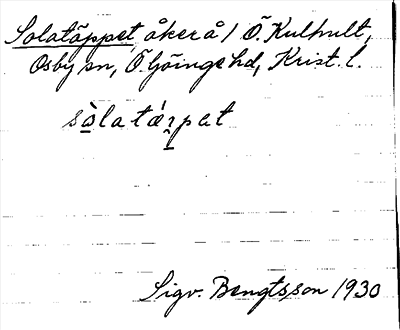 Solatäppet, åker å 1 Ö. Kulhult,
Osby sn, Ö Göinge hd, Krist. l.
sòlatárpat
Sigv. Bengtsson 1930